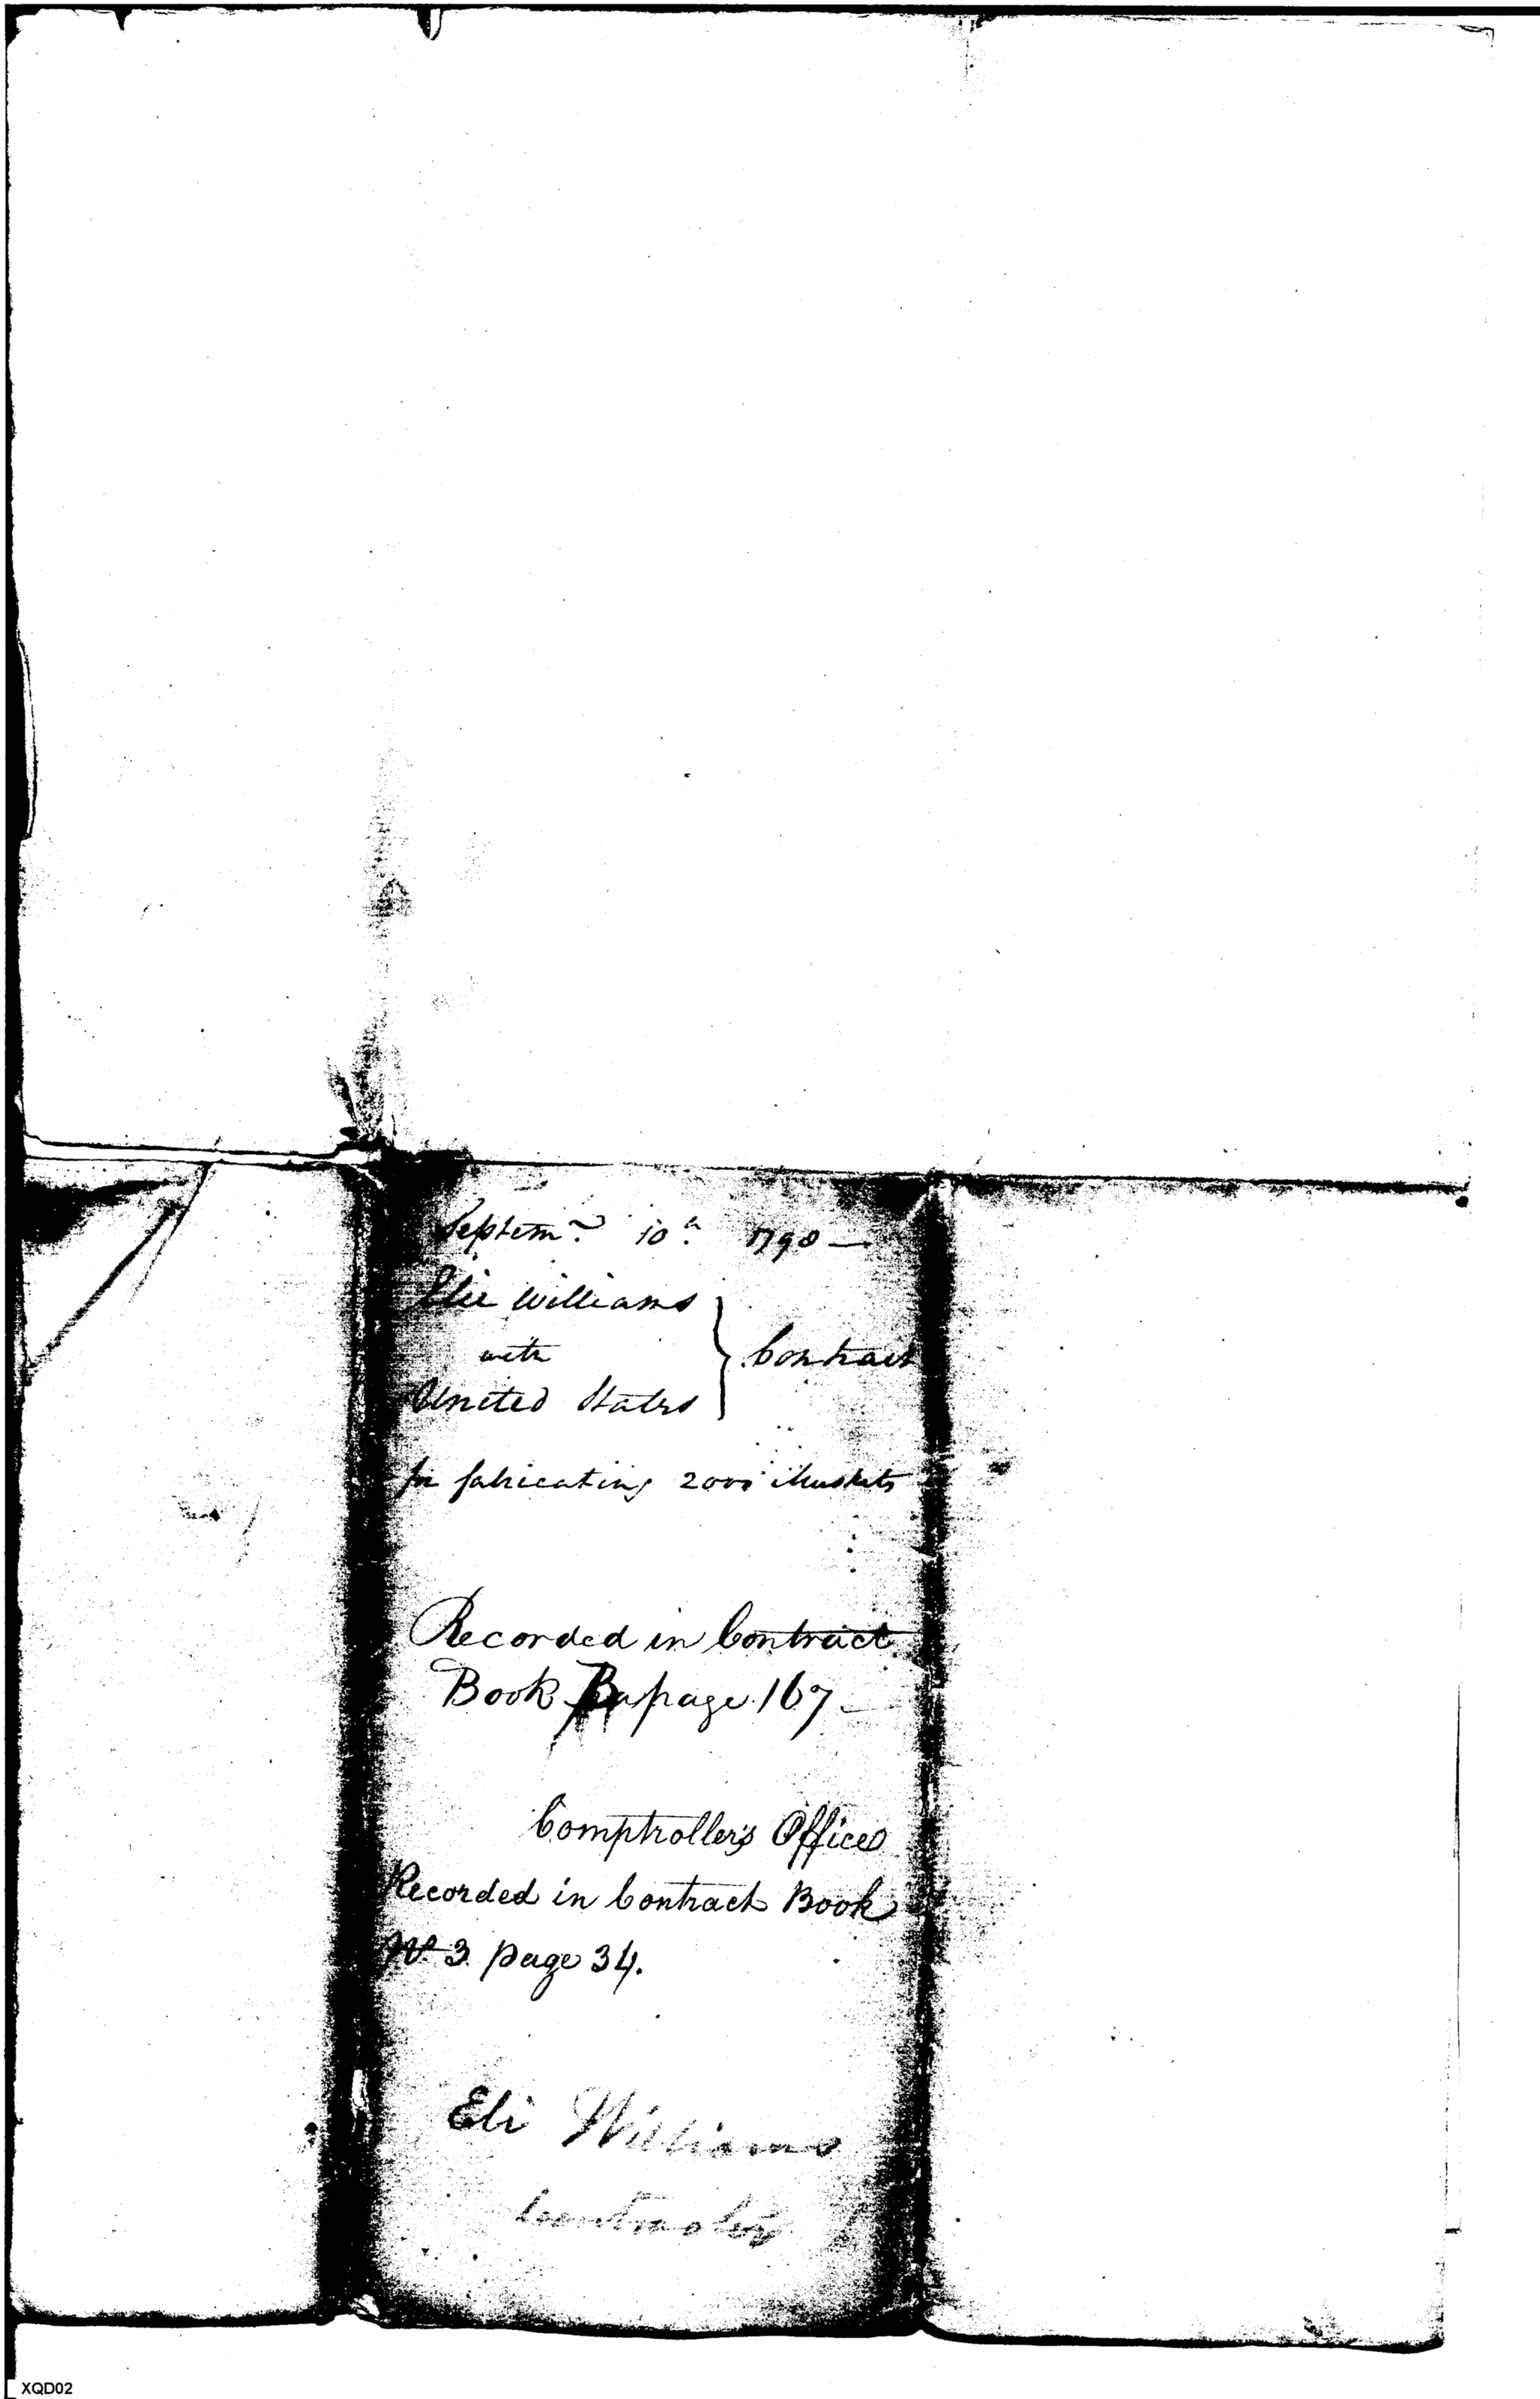 Septemr. 10th. 1798 —
Elie Williams
with
United States
} Contract
for fabricating 2000 Muskets
Recorded in Contract
Book B page 167
Comptroller's Office
Recorded in Contract Book
No. 3 page 34.
Eli Williams
XQD02